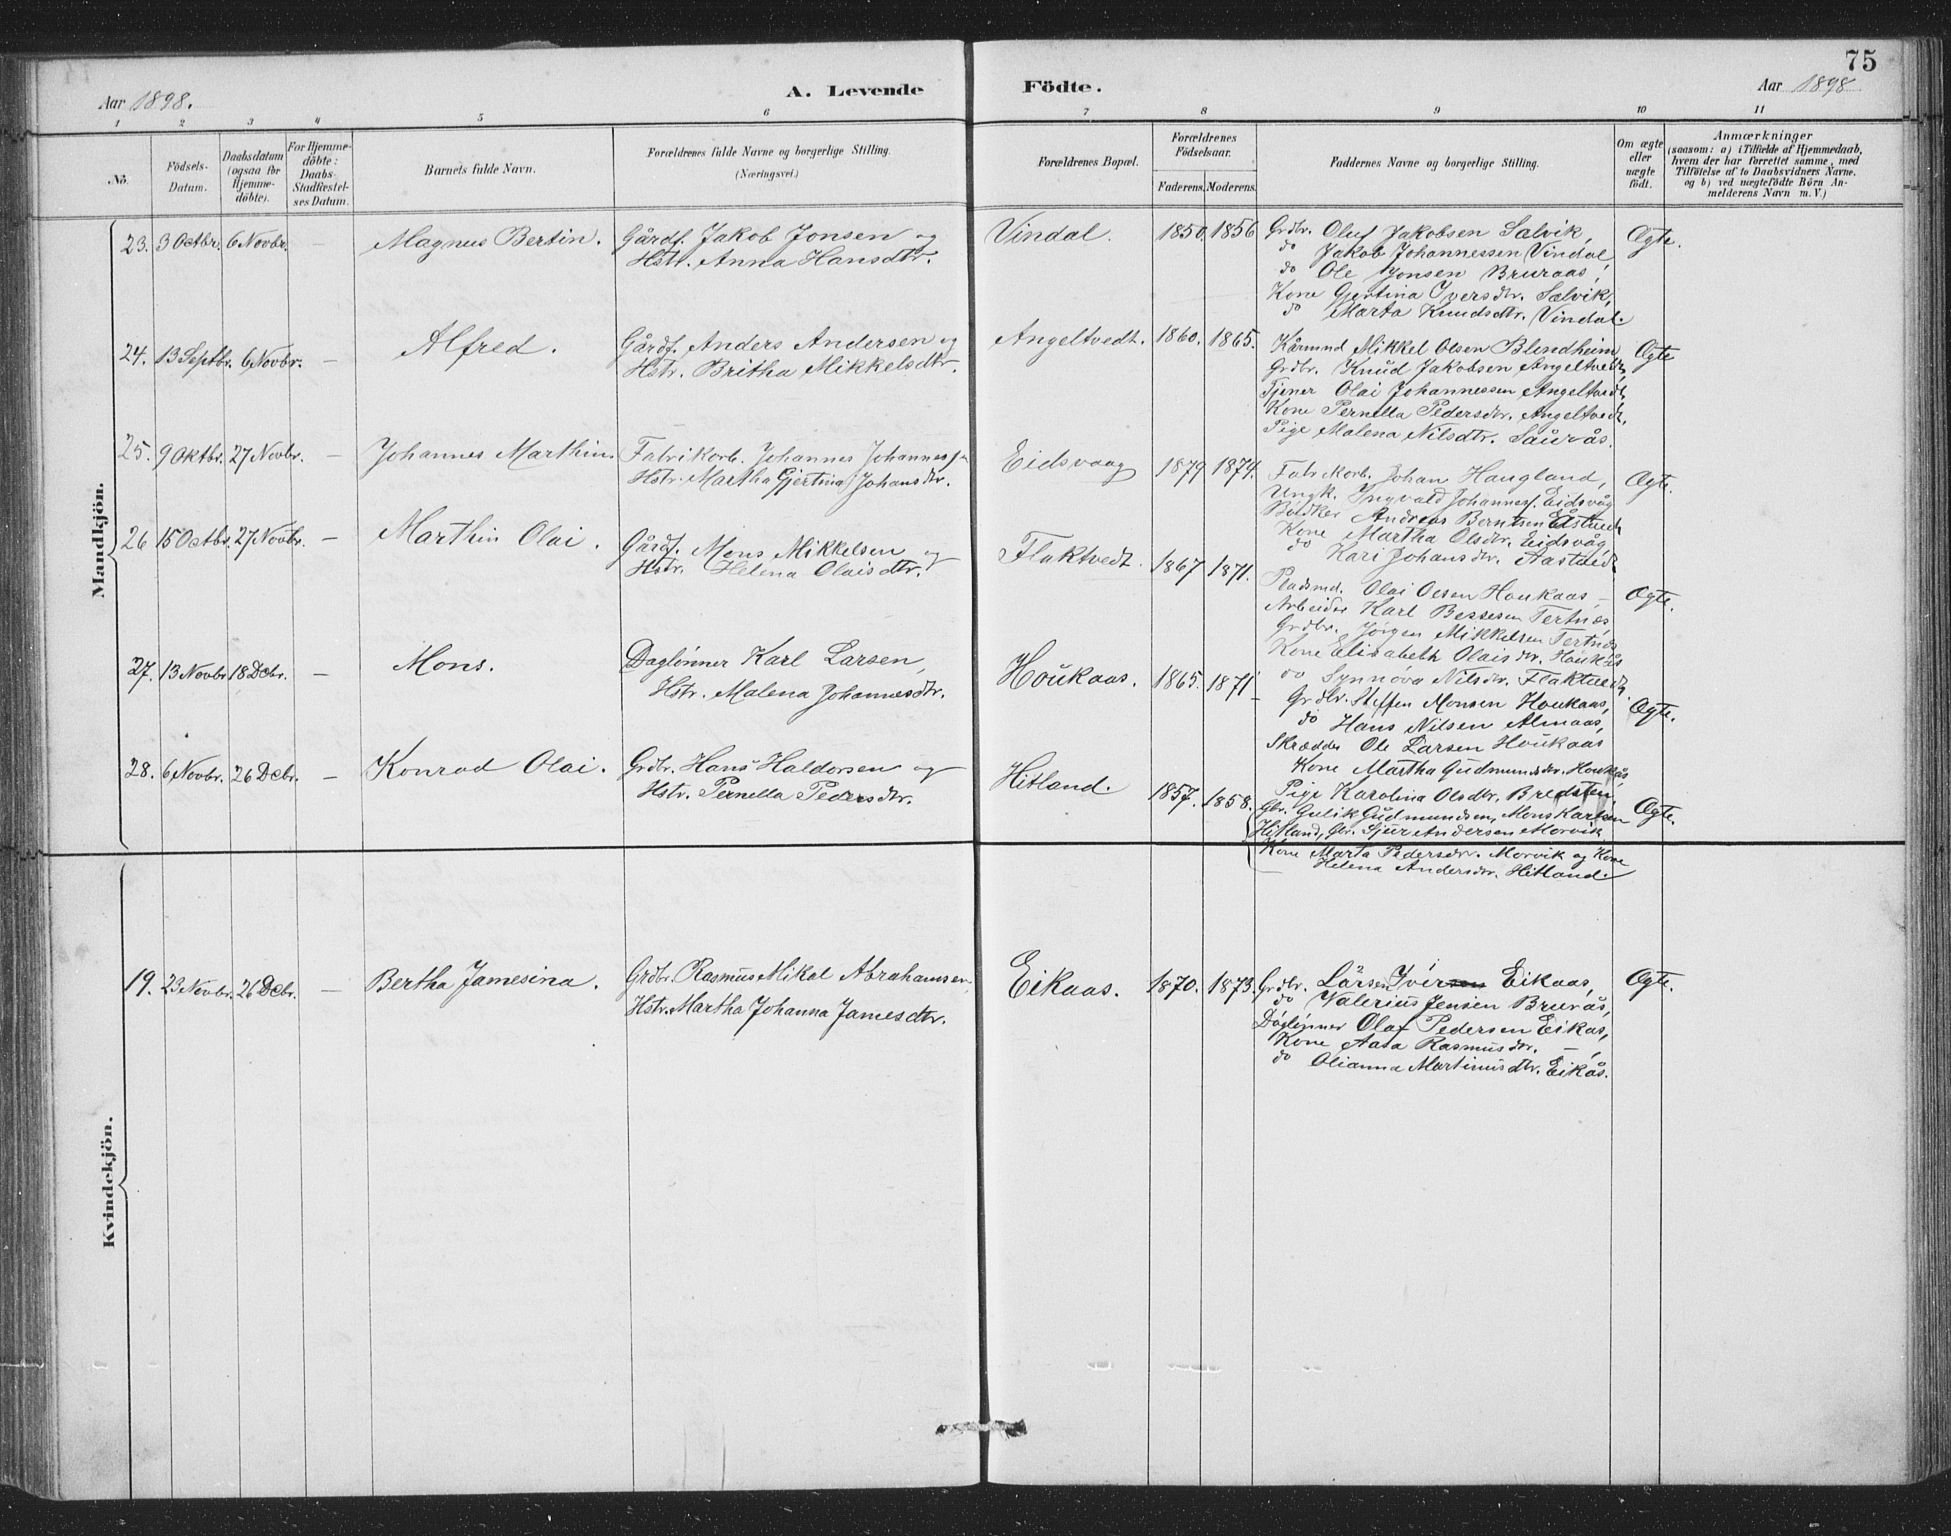 75
Aar 1898. A. Levende Födte. Aar 1898
1 2 3 4 5 6 7 8 9 10 11
No.
Födsels-
Datum.
Daabsdatum
(ogsaa for
Hjemme-
döbte).
For Hjemme-
döbte:
Daabs-
Stadfæstel-
ses Datum.
Barnets fulde Navn.
Forældrenes fulde Navne og borgerlige Stilling.
(Næringsvei.)
Forældrenes Bopæl.
Forældrenes
Födselsaar.
Faderens. Moderens.
Faddernes Navne og borgerlige Stilling.
Om ægte
eller
uægte
födt.
Anmærkninger
(saasom: a) i Tilfælde af Hjemmedaab,
hvem der har forrettet samme, med
Tilföielse af to Daabsvidners Navne.
og b) ved uægtefödte Börn An-
melderens Navn m. V.)
Mandkjön.
23. 3 Octbr. 6 Novbr. – Magnus Bertin. Gårdf. Jakob Jonsen og
Hstr. Anna Hansdtr.
Vindal. 1850. 1856
Grdbr. Oluf Jakobsen Salvik,
do Jakob Johannessen Vindal
do Ole Jonsen Bruraas,
Kone Gjertina Iversdtr. Salvik,
do Marta Knudsdtr. Vindal.
Ægte.
24. 13 Septbr. 6 Novbr. – Alfred. Gårdf. Anders Andersen og
Hstr. Britha Mikkelsdtr.
Angeltvedt. 1860. 1865.
Kårmnd Mikkel Olsen Blindheim
Grdbr. Knud Jakobsen Angeltvedt,
Tjener Olai Johannessen Angeltvedt,
Kone Pernella Pedersdtr. Angeltvedt,
Pige Malena Nilsdtr. Saurås.
Ægte
25. 9 Oktbr. 27 Novbr. – Johannes Marthin. Fabrikarb. Johannes Johannes
Hstr. Martha Gjertina Johansdtr.
Eidsvaag 1879 1874.
Fabrikarb. Johan Haugland,
Ungk. Ingvald Johannesf. Eidsvåg
Bødker Andreas Berntsen
Kone Martha Olsdtr. Eidsvåg
do Kari Johansdtr. Aastued
Ægte.
26 15 Octbr. 27 Novbr. – Marthin Olai. Gårdf. Mons Mikkelsen og
Hstr. Helena Olaisdtr.
Flaktvedt. 1867 1871.
Pladsmd. Olai Olsen Houkaas,
Arbeider Karl Bessesen Tertnæs
Grdbr. Jørgen Mikkelsen Tertnæs
Kone Elisabeth Olaisdtr. Houkås
do Synnøva Nilsdtr. Flaktvedt.
Ægte.
27. 13 Novbr 18 Decbr. – Mons. Daglønner Karl Larsen,
Hstr. Malena Johannesdtr.
Houkaas. 1865. 1871
Grdbr. Steffen Monsen Houkaas,
do Hans Nilsen Almaas,
Skrædder Ole Larsen Houkaas
Kone Martha Gudmundsdtr. Houkås,
Pige Karolina Olsdtr. Bredsten,
Ægte.
28. 6 Novbr. 26 Decbr. – Konrad Olai. Grdbr. Hans Haldorsen og
Hstr. Pernella Pedersdtr.
Hitland. 1857. 1858.
Gbr. Gulik Gudmundsen, Mons Karlsen
Hitland, Gbr. Sjur Andersen Morvik
Kone Marta Pedersdtr. Morvik og Kone
Helena Andersdtr. Hitland.
Ægte.
Kvindekjön.
19. 23 Novbr. 26 Decbr. – Bertha Jamesina. Grdbr. Rasmus Mikal Abrahamsen,
Hstr. Martha Johanna Jamesdtr.
Eikaas. 1870. 1873.
Grdbr. Larsen Iversen Eikaas,
do Valerius Jensen Brurås,
Daglønner Olaf Pedersen Eikas,
Kone Aasa Rasmusdtr. –,
do Olianna Martinusdtr. Eikås.
Ægte.